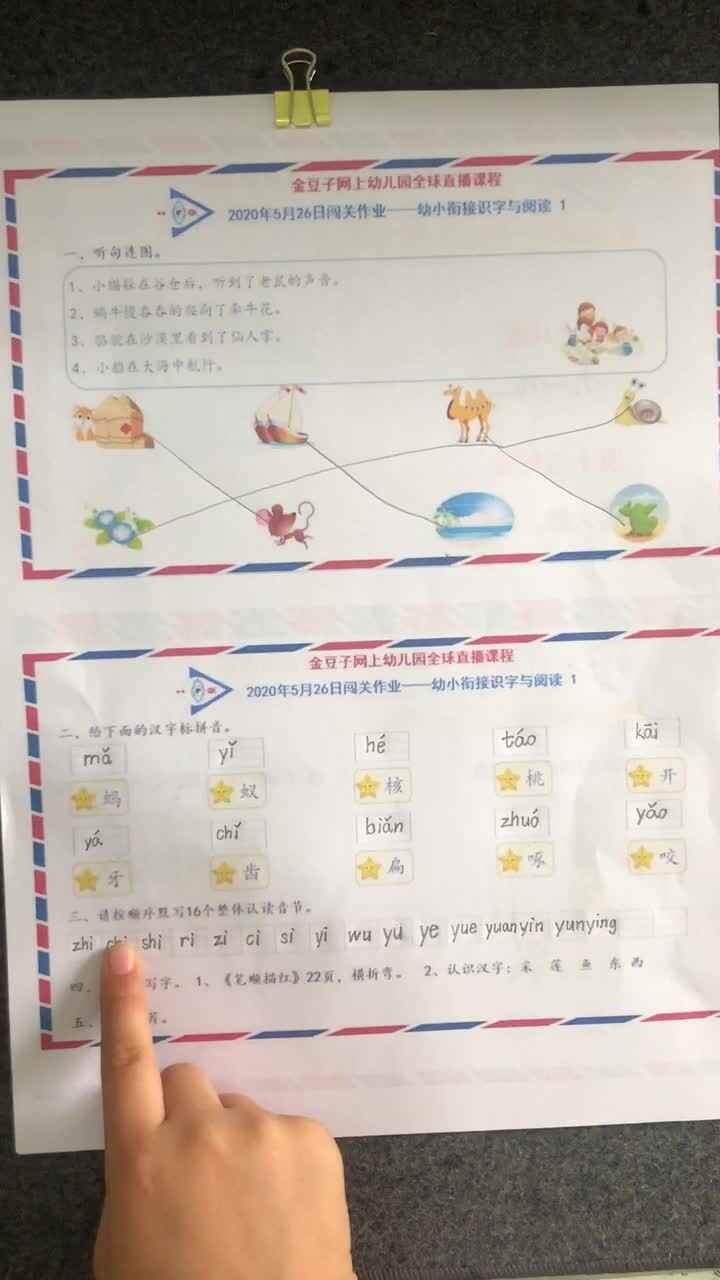 金豆子网上幼儿园全球直播课程
2020年5月26日闯关作业——幼小衔接识字与阅读 1
一、听句连图。
1、小猫躲在谷仓后，听到了老鼠的声音。
2、蜗牛慢吞吞的爬向了牵牛花。
3、骆驼在沙漠里看到了仙人掌。
4、小船在大海中航行。
金豆子网上幼儿园全球直播课程
2020年5月26日闯关作业——幼小衔接识字与阅读 1
二、给下面的汉字标拼音。
mǎ yǐ hé táo kāi
蚂 蚁 核 桃 开
yá chǐ biǎn zhuó yǎo
牙 齿 扁 啄 咬
三、请按顺序默写16个整体认读音节。
zhi chi shi ri zi ci si yi wu yu ye yue yuan yin yun ying
四、 写字。 1、《笔顺描红》22页，横折弯。 2、认识汉字：采 莲 鱼 东 西
五、